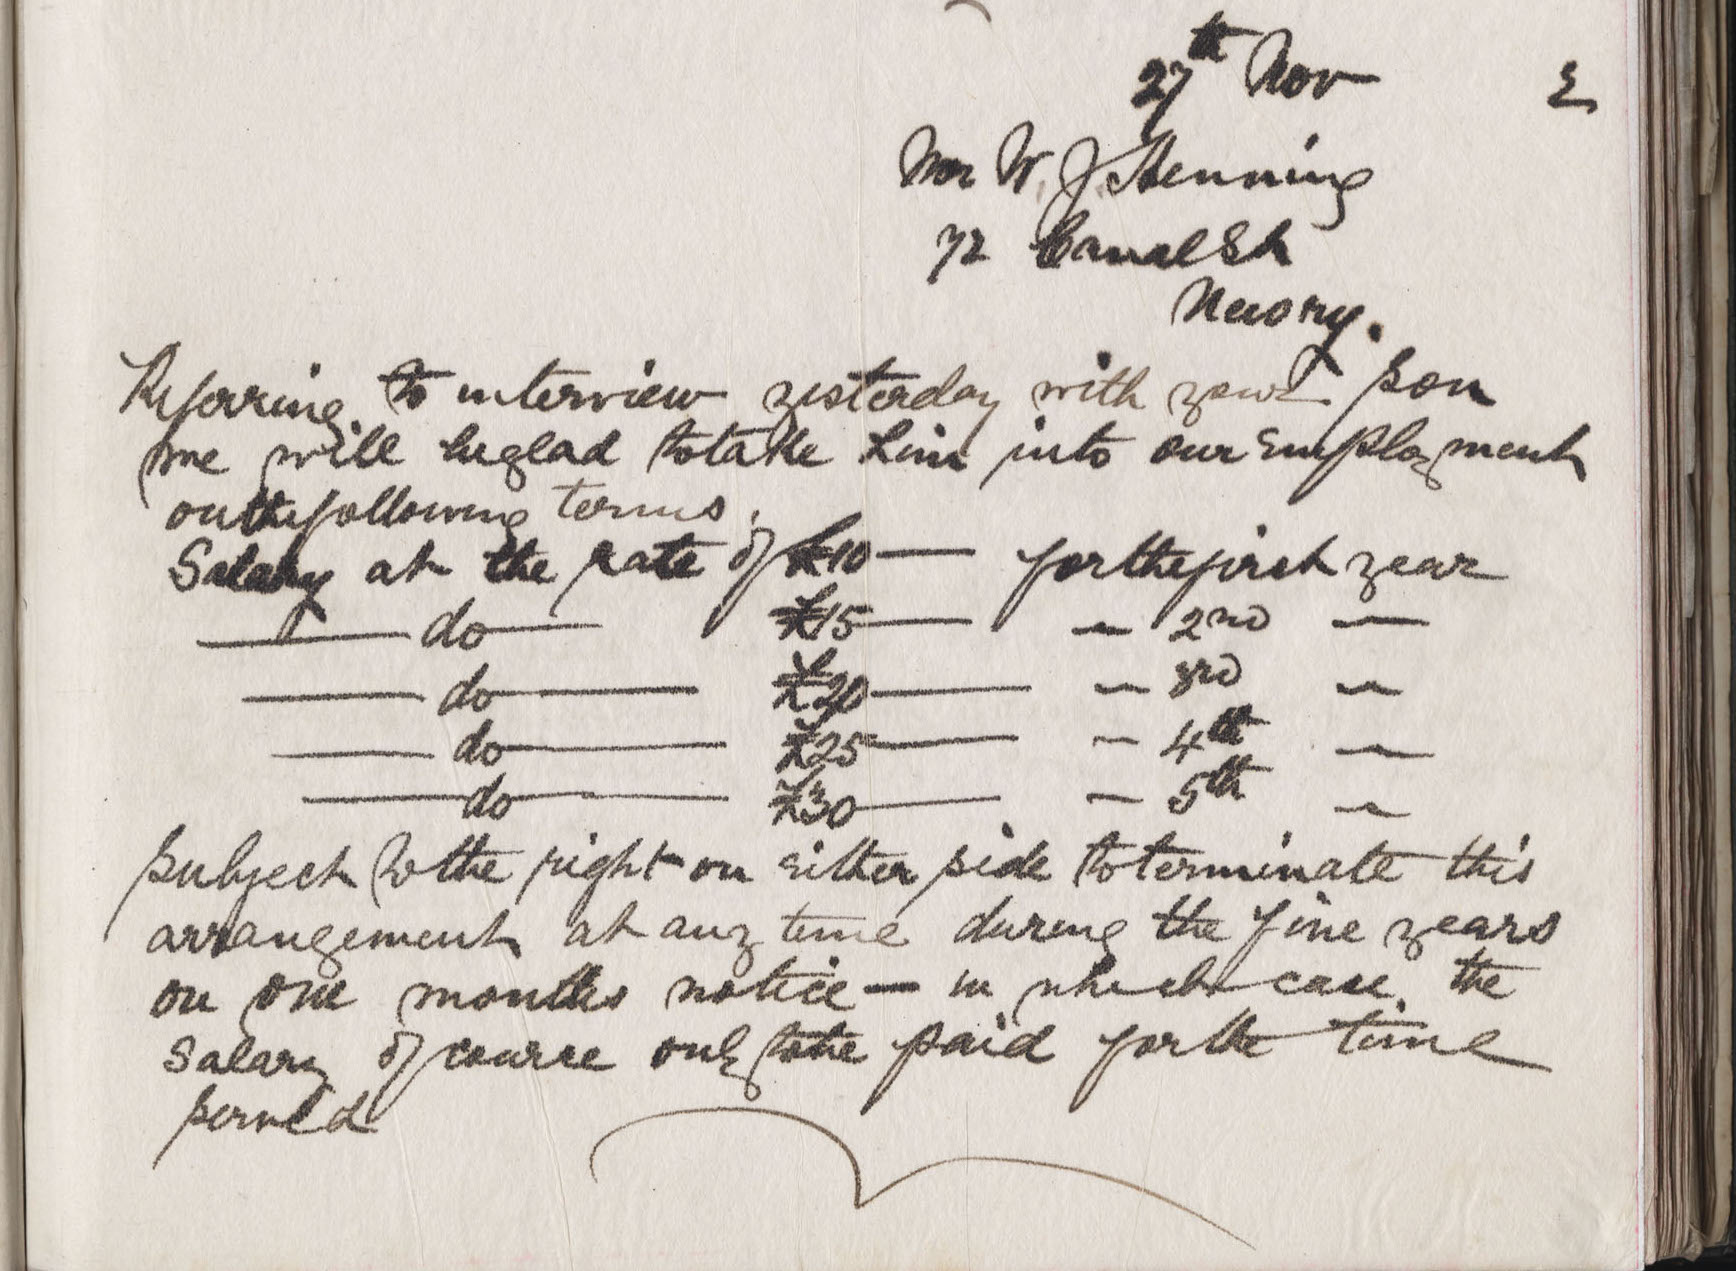 27th Nov E
Mr W. J Henning
72 Canal St
Newry.
Referring to interview yesterday with your son
we will be glad to take him into our Employment
on the following terms.
Salary at the rate of £10 — for the first year
— do — £15 — " 2nd "
— do — £20 — " 3rd "
— do — £25 — " 4th "
— do — £30 — " 5th "
subject to the right on either side to terminate this
arrangement at any time during the five years
on one months notice — in which case the
salary of course only to be paid for the time
served